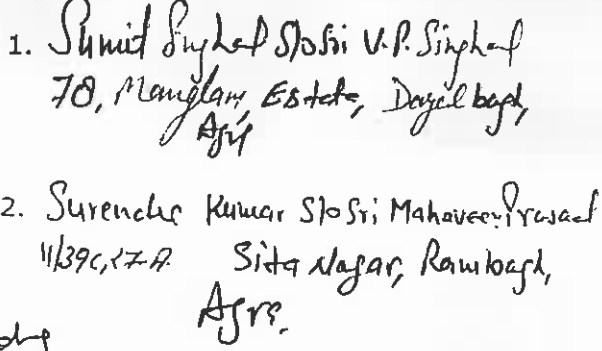 1. Sumit Singhal S/o Sri V.P. Singhal
78, Manglam Estate, Dayal bagh,
Agra
2. Surendra Kumar S/o Sri Mahaveer Prasad
11/39C, Sita Nagar, Rambagh,
Agra.